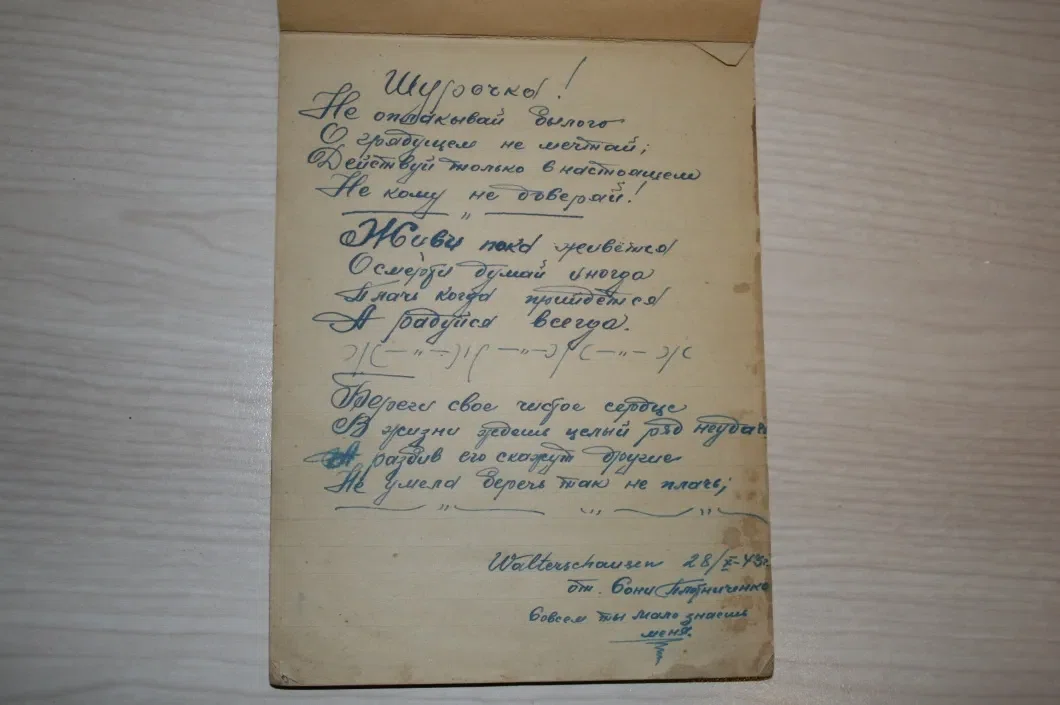 Шурочка!
Не оплакывай былого
О грядущем не мечтай;
Действуй только в настоящем
Не кому не доверяй!
Живи пока живётся
О смерти думай иногда
Плачь когда прийдётся
А радуйся всегда.
Береги свое чистое сердце
В жизни ждешь целый ряд неудач
А разбив его скажут другие
Не умела беречь так не плачь;
Walterschausen 28/X-43г.
от. Сони Плотниченко
Совсем ты мало знаешь
меня.